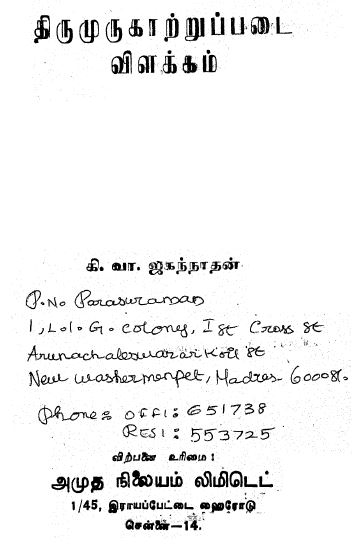 திருமுருகாற்றுப்படை
விளக்கம்
கி. வா. ஜகந்நாதன்
P. No Parasuraman
1, L.I.G. Colony, I st Cross st
Arunachaleswarar Koil st
New Washermenpet, Madras 600081.
Phone: OFFI: 651738
RESI: 553725
விற்பனை உரிமை:
அமுத நிலையம் லிமிடெட்
1/45, இராயப்பேட்டை ஹைரோடு
சென்னை—14.